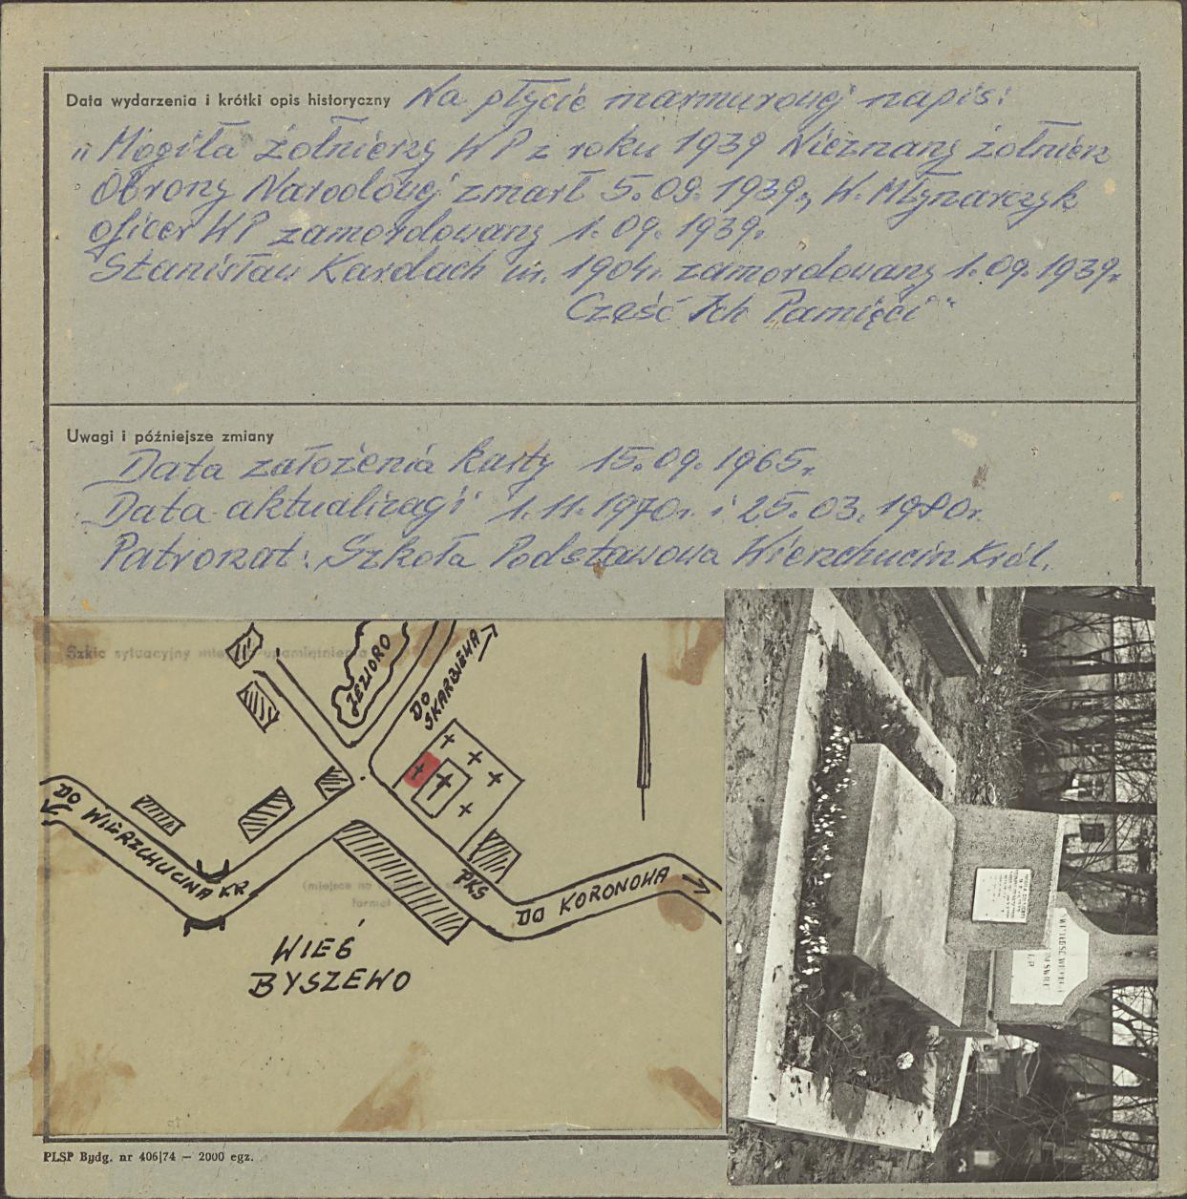 Data wydarzenia i krótki opis historyczny Na płycie marmurowej napis:
"Mogiła żołnierzy WP z roku 1939 Nieznany żołnierz
Obrony Narodowej zmarł 5.09.1939., W. Młynarczyk
oficer WP zamordowany 1.09.1939.
Stanisław Kardach ur. 1904r. zamordowany 1.09.1939r.
Cześć Ich Pamięci"
Uwagi i późniejsze zmiany
Data założenia karty 15.09.1965r.
Data aktualizacji 1.11.1970r. i 25.03.1980r.
Patronat: Szkoła Podstawowa Wierzchucin Król.
Szkic sytuacyjny
JEZIORO
DO
SKARBIEWA
DO WIERZCHUCINA KR.
PKS
DO KORONOWA
WIEŚ
BYSZEWO
PLSP Bydg. nr 406/74 — 2000 egz.